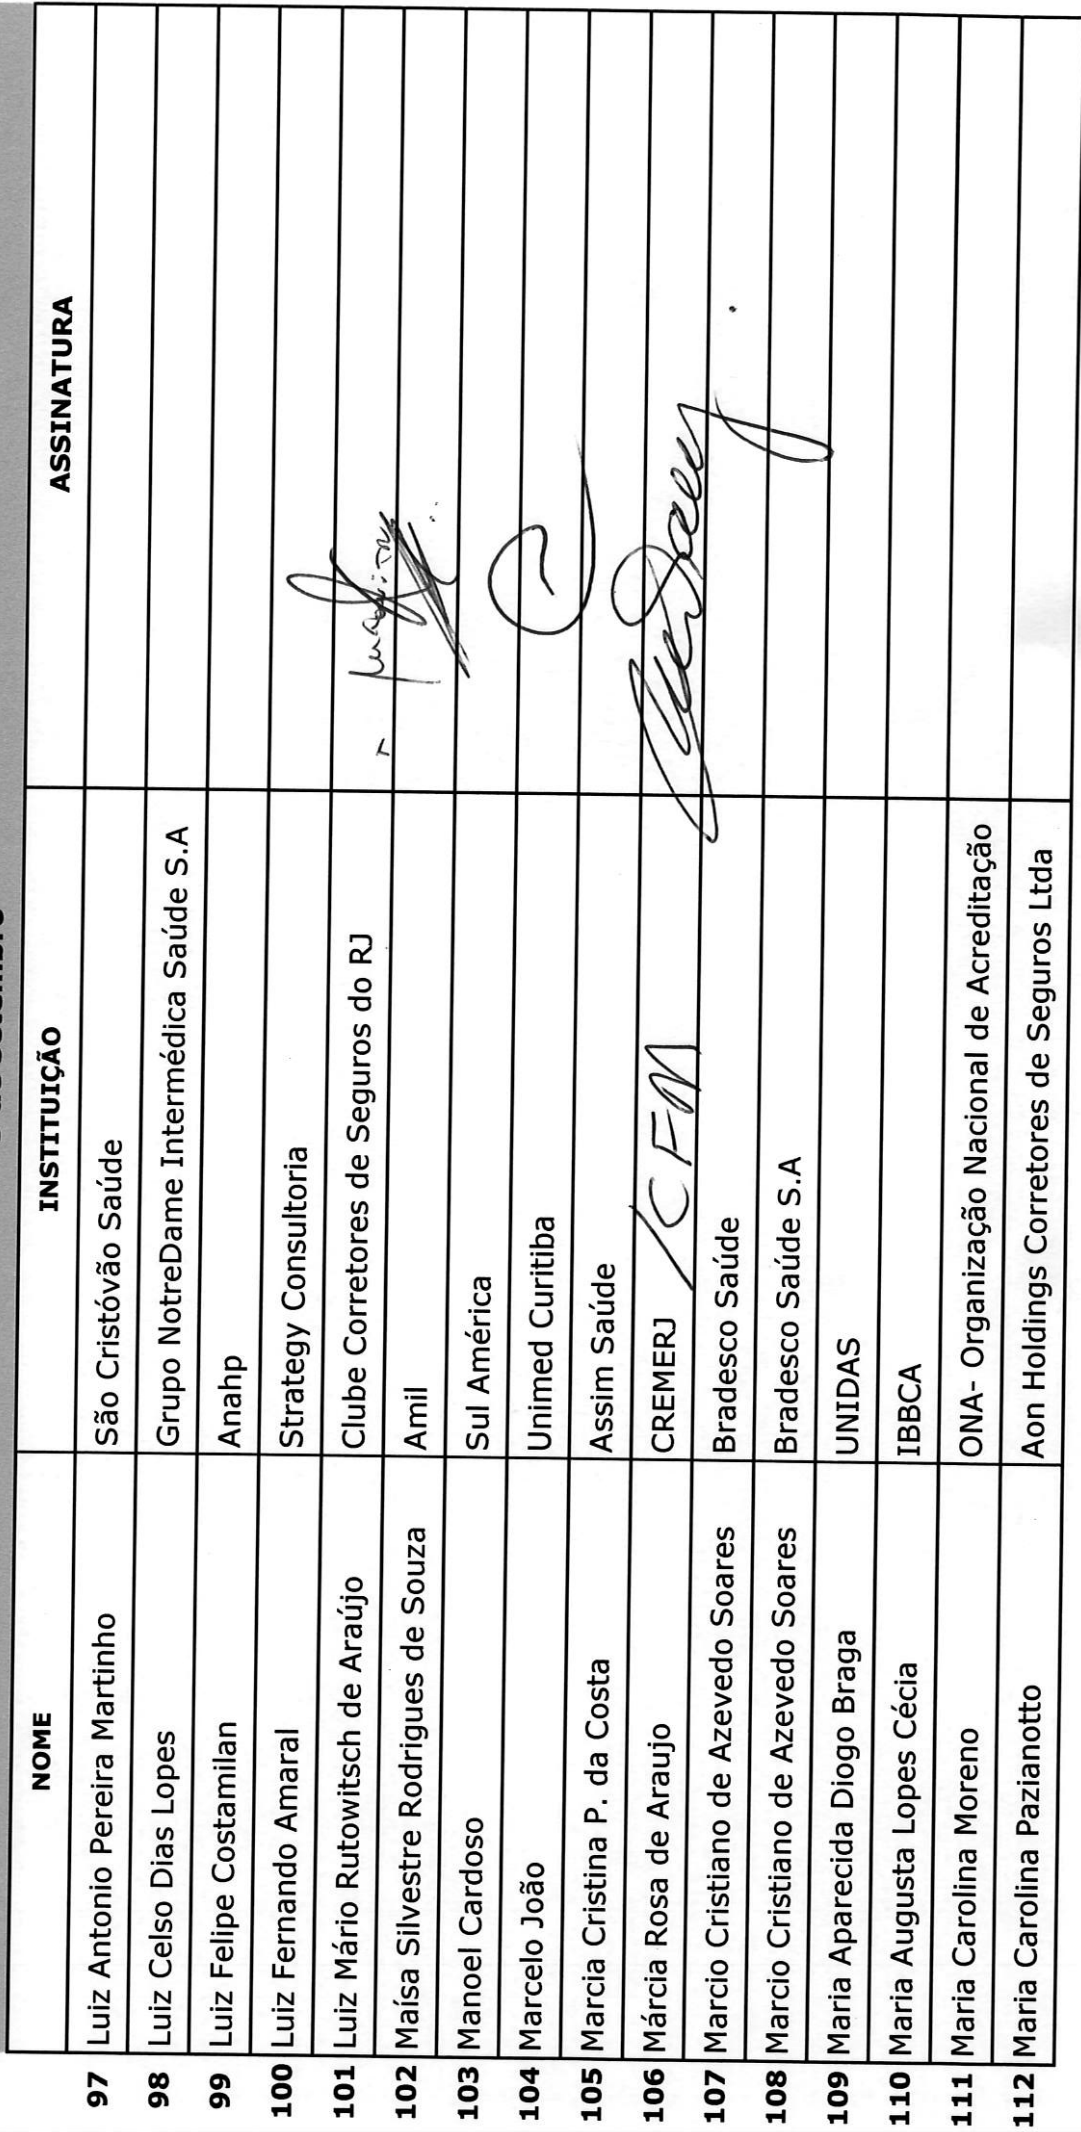 NOME INSTITUIÇÃO ASSINATURA
97 Luiz Antonio Pereira Martinho São Cristóvão Saúde
98 Luiz Celso Dias Lopes Grupo NotreDame Intermédica Saúde S.A
99 Luiz Felipe Costamilan Anahp
100 Luiz Fernando Amaral Strategy Consultoria
101 Luiz Mário Rutowitsch de Araújo Clube Corretores de Seguros do RJ
102 Maísa Silvestre Rodrigues de Souza Amil
103 Manoel Cardoso Sul América
104 Marcelo João Unimed Curitiba
105 Marcia Cristina P. da Costa Assim Saúde
106 Márcia Rosa de Araujo CREMERJ /CFM
107 Marcio Cristiano de Azevedo Soares Bradesco Saúde
108 Marcio Cristiano de Azevedo Soares Bradesco Saúde S.A
109 Maria Aparecida Diogo Braga UNIDAS
110 Maria Augusta Lopes Cécia IBBCA
111 Maria Carolina Moreno ONA- Organização Nacional de Acreditação
112 Maria Carolina Pazianotto Aon Holdings Corretores de Seguros Ltda